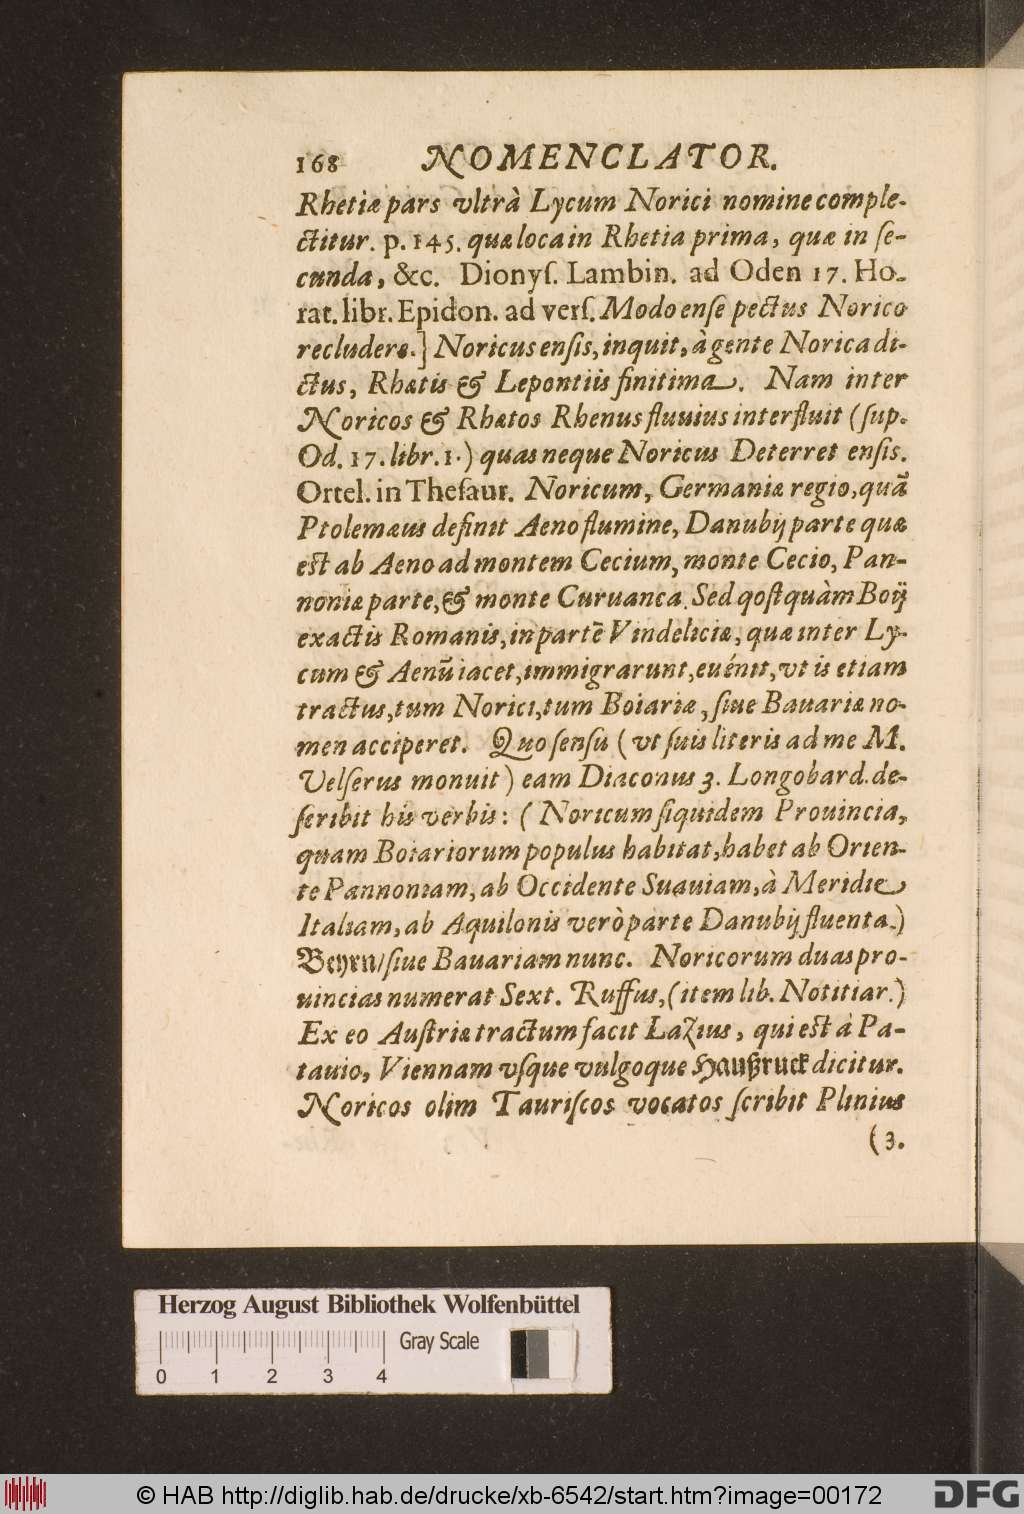 168 NOMENCLATOR.
Rhetiæ pars vltrà Lycum Norici nomine comple-
ctitur. p. 145. quæ loca in Rhetia prima, quæ in ſe-
cunda, &c. Dionyſ. Lambin. ad Oden 17. Ho-
rat. libr. Epidon. ad verſ. Modo enſe pectus Norico
recludere.] Noricus enſis, inquit, à gente Norica di-
ctus, Rhætis & Lepontiis finitima. Nam inter
Noricos & Rhætos Rhenus fluuius interfluit (ſup.
Od. 17. libr. 1.) quas neque Noricus Deterret enſis.
Ortel. in Theſaur. Noricum, Germaniæ regio, quã
Ptolemæus definit Aeno flumine, Danubij parte quæ
est ab Aeno ad montem Cecium, monte Cecio, Pan-
noniæ parte, & monte Curuanca. Sed qostquàm Boij
exactis Romanis, in partẽ Vindeliciæ, quæ inter Ly-
cum & Aenũ iacet, immigrarunt, euénit, vt is etiam
tractus, tum Norici, tum Boiariæ, ſiue Bauariæ no-
men acciperet. Quo ſenſu (vt ſuis literis ad me M.
Velſerus monuit) eam Diaconus 3. Longobard. de-
ſcribit his verbis: (Noricum ſiquidem Prouincia,
quam Boiariorum populus habitat, habet ab Orien-
te Pannoniam, ab Occidente Suauiam, à Meridie
Italiam, ab Aquilonis verò parte Danubij fluenta.)
Beyrn/ ſiue Bauariam nunc. Noricorum duas pro-
uincias numerat Sext. Ruffus, (item lib. Notitiar.)
Ex eo Auſtriæ tractum facit Lazius, qui est à Pa-
tauio, Viennam vſque vulgoque Haußruck dicitur.
Noricos olim Tauriſcos vocatos ſcribit Plinius
(3.
Herzog August Bibliothek Wolfenbüttel
Gray Scale
0 1 2 3 4
© HAB http://diglib.hab.de/drucke/xb-6542/start.htm?image=00172
DFG